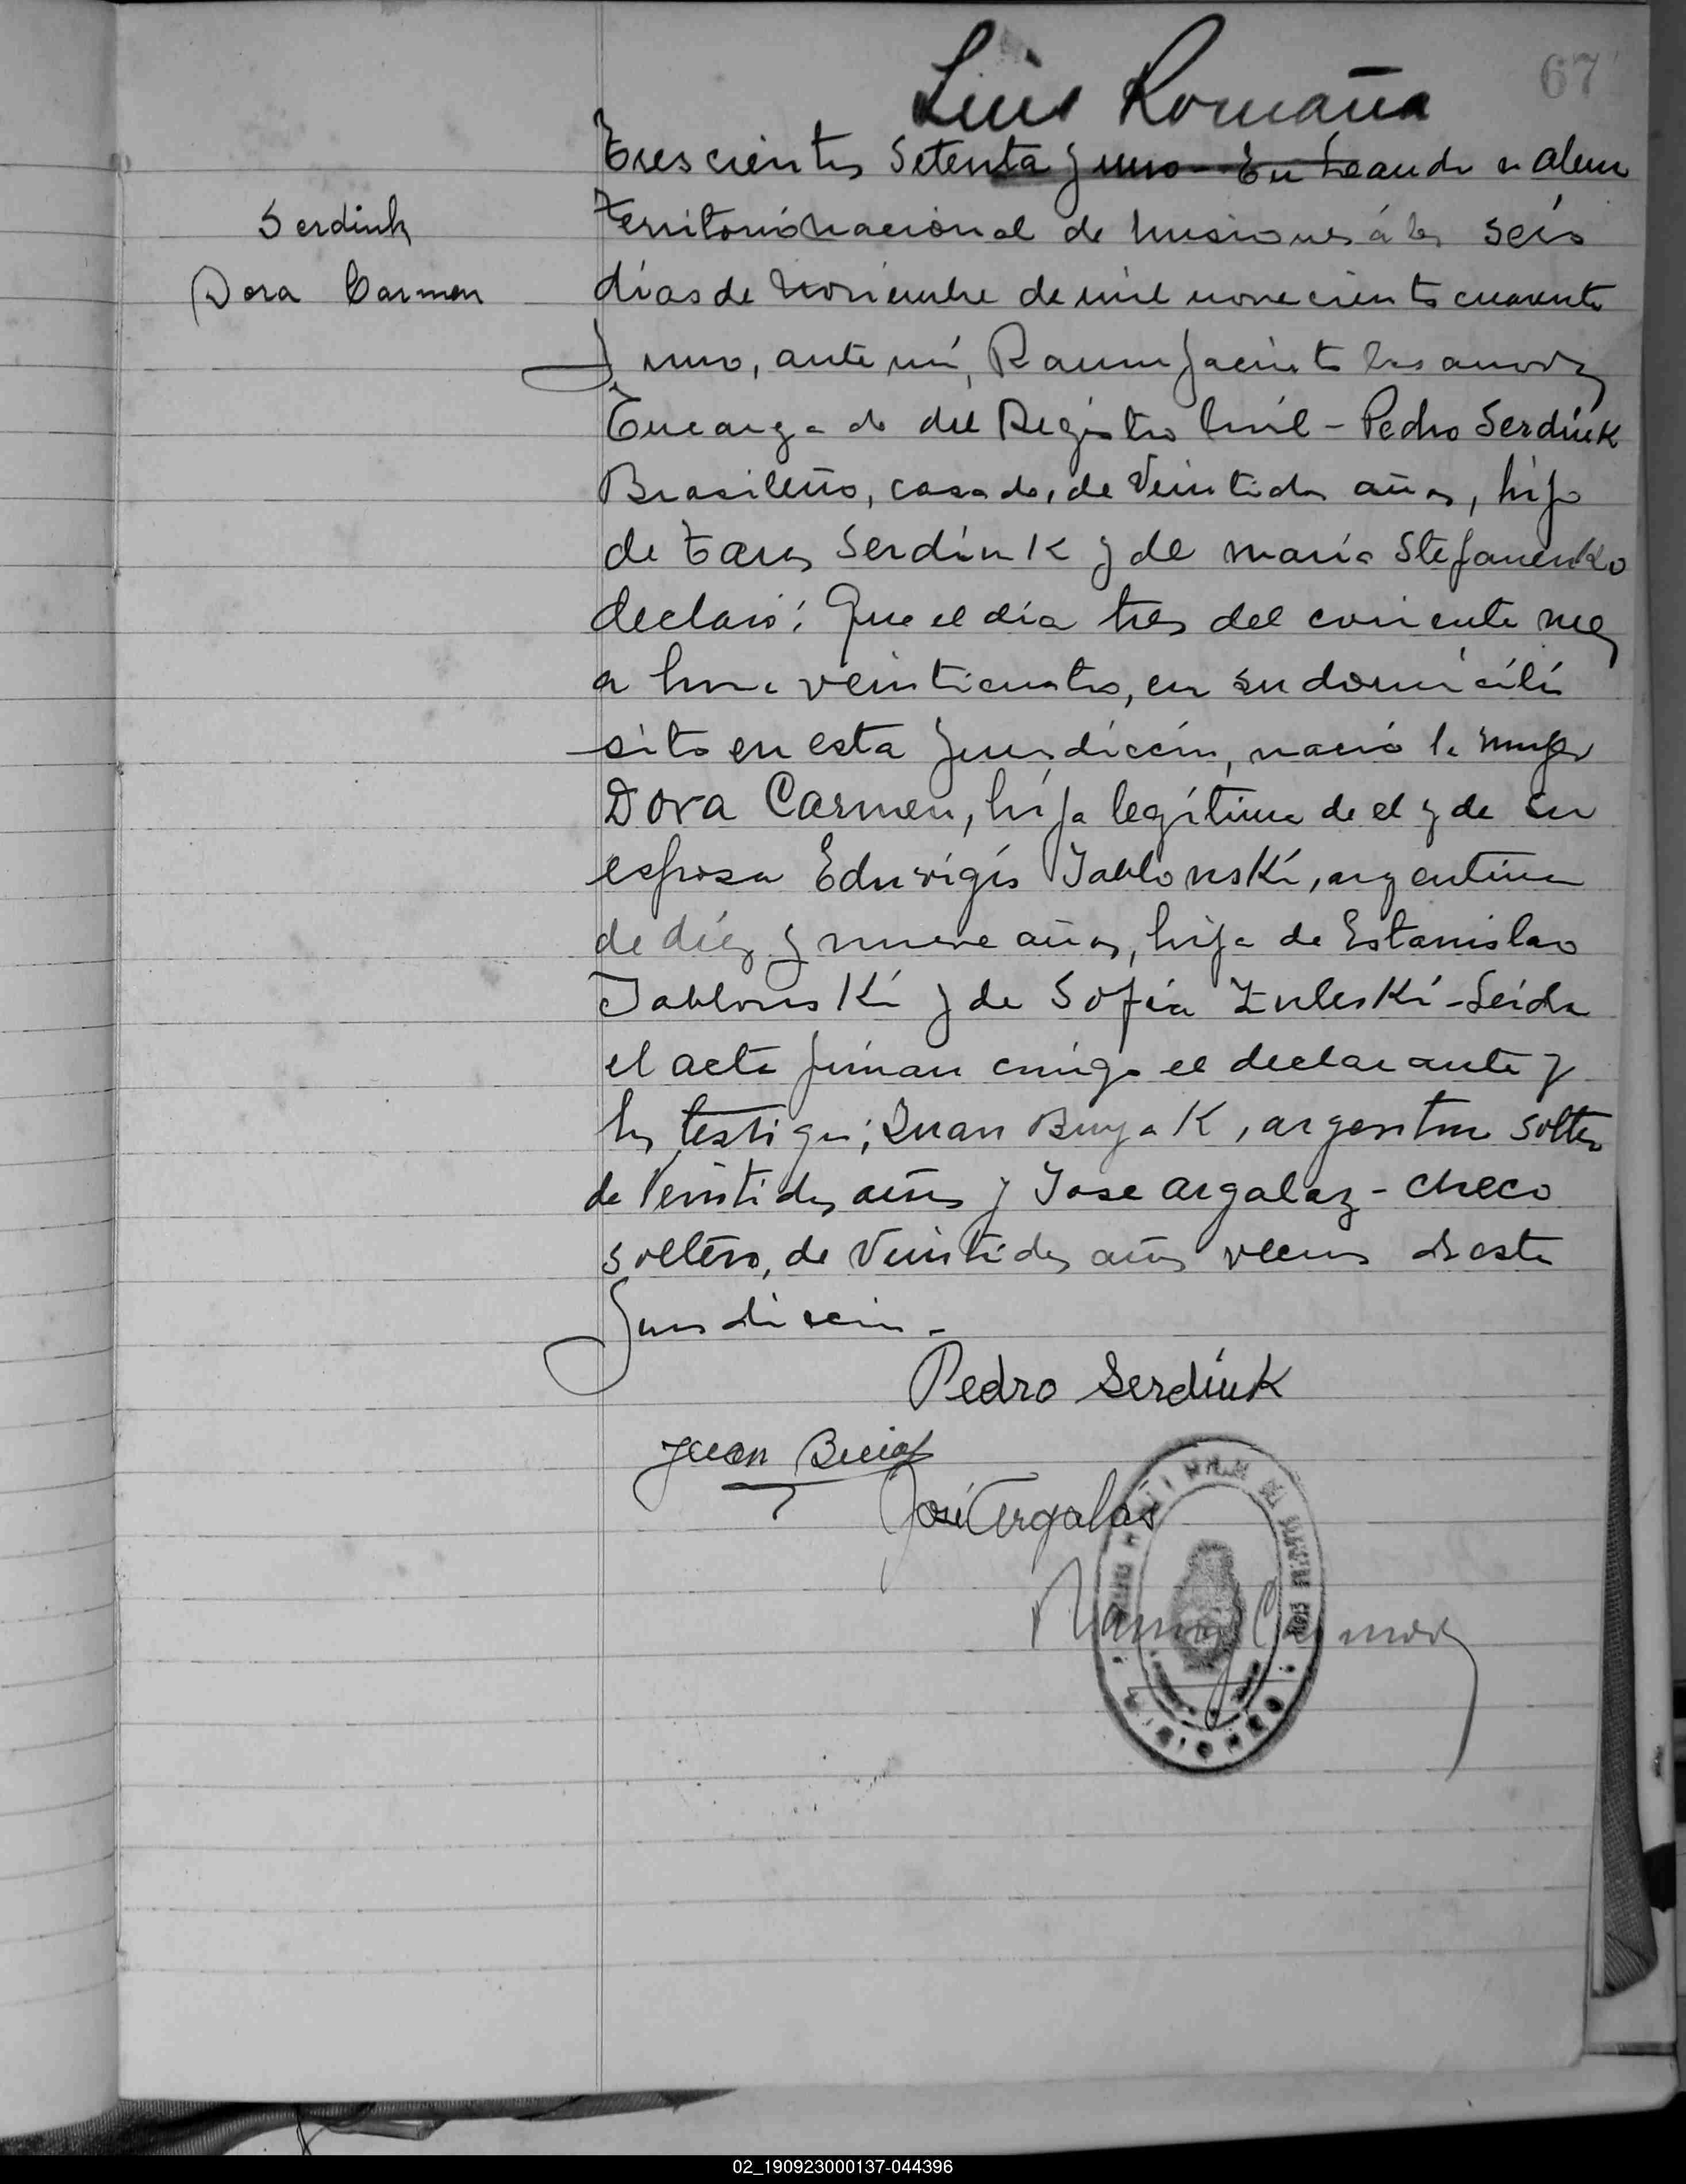 67
Luis Romaña
Trescientos Setenta y uno - En Leandro n alem
Serdiuk
Territorio nacional de misiones á los seis
Dora Carmen
días de noviembre de mil novecientos cuarenta
y uno, ante mí, Ramon Jacinto
Encargado del Registro Civil - Pedro Serdiuk
Brasileño, casado, de Veintidos años, hijo
de Taras Serdiuk y de maria Stefanenko
declaró: Que el día tres del corriente mes
a hora veinticuatro, en su domicilio
sito en esta Jurisdiccion, nació la mujer
Dora Carmen, hija legítima de el y de su
esposa Eduvigis Jablonski, argentina
de diez y nueve años, hija de Estanislao
Jablonski y de Sofia Zuleski - Leida
el acta firman conmigo el declarante y
los testigos; Juan Buyak, argentino soltero
de Veintidos años y Jose Argalaz - checo
soltero, de Veintidos años vecinos de esta
Jurisdiccion. -
Pedro Serdiuk
Juan
José Argalas
MISIONES
02_190923000137-044396